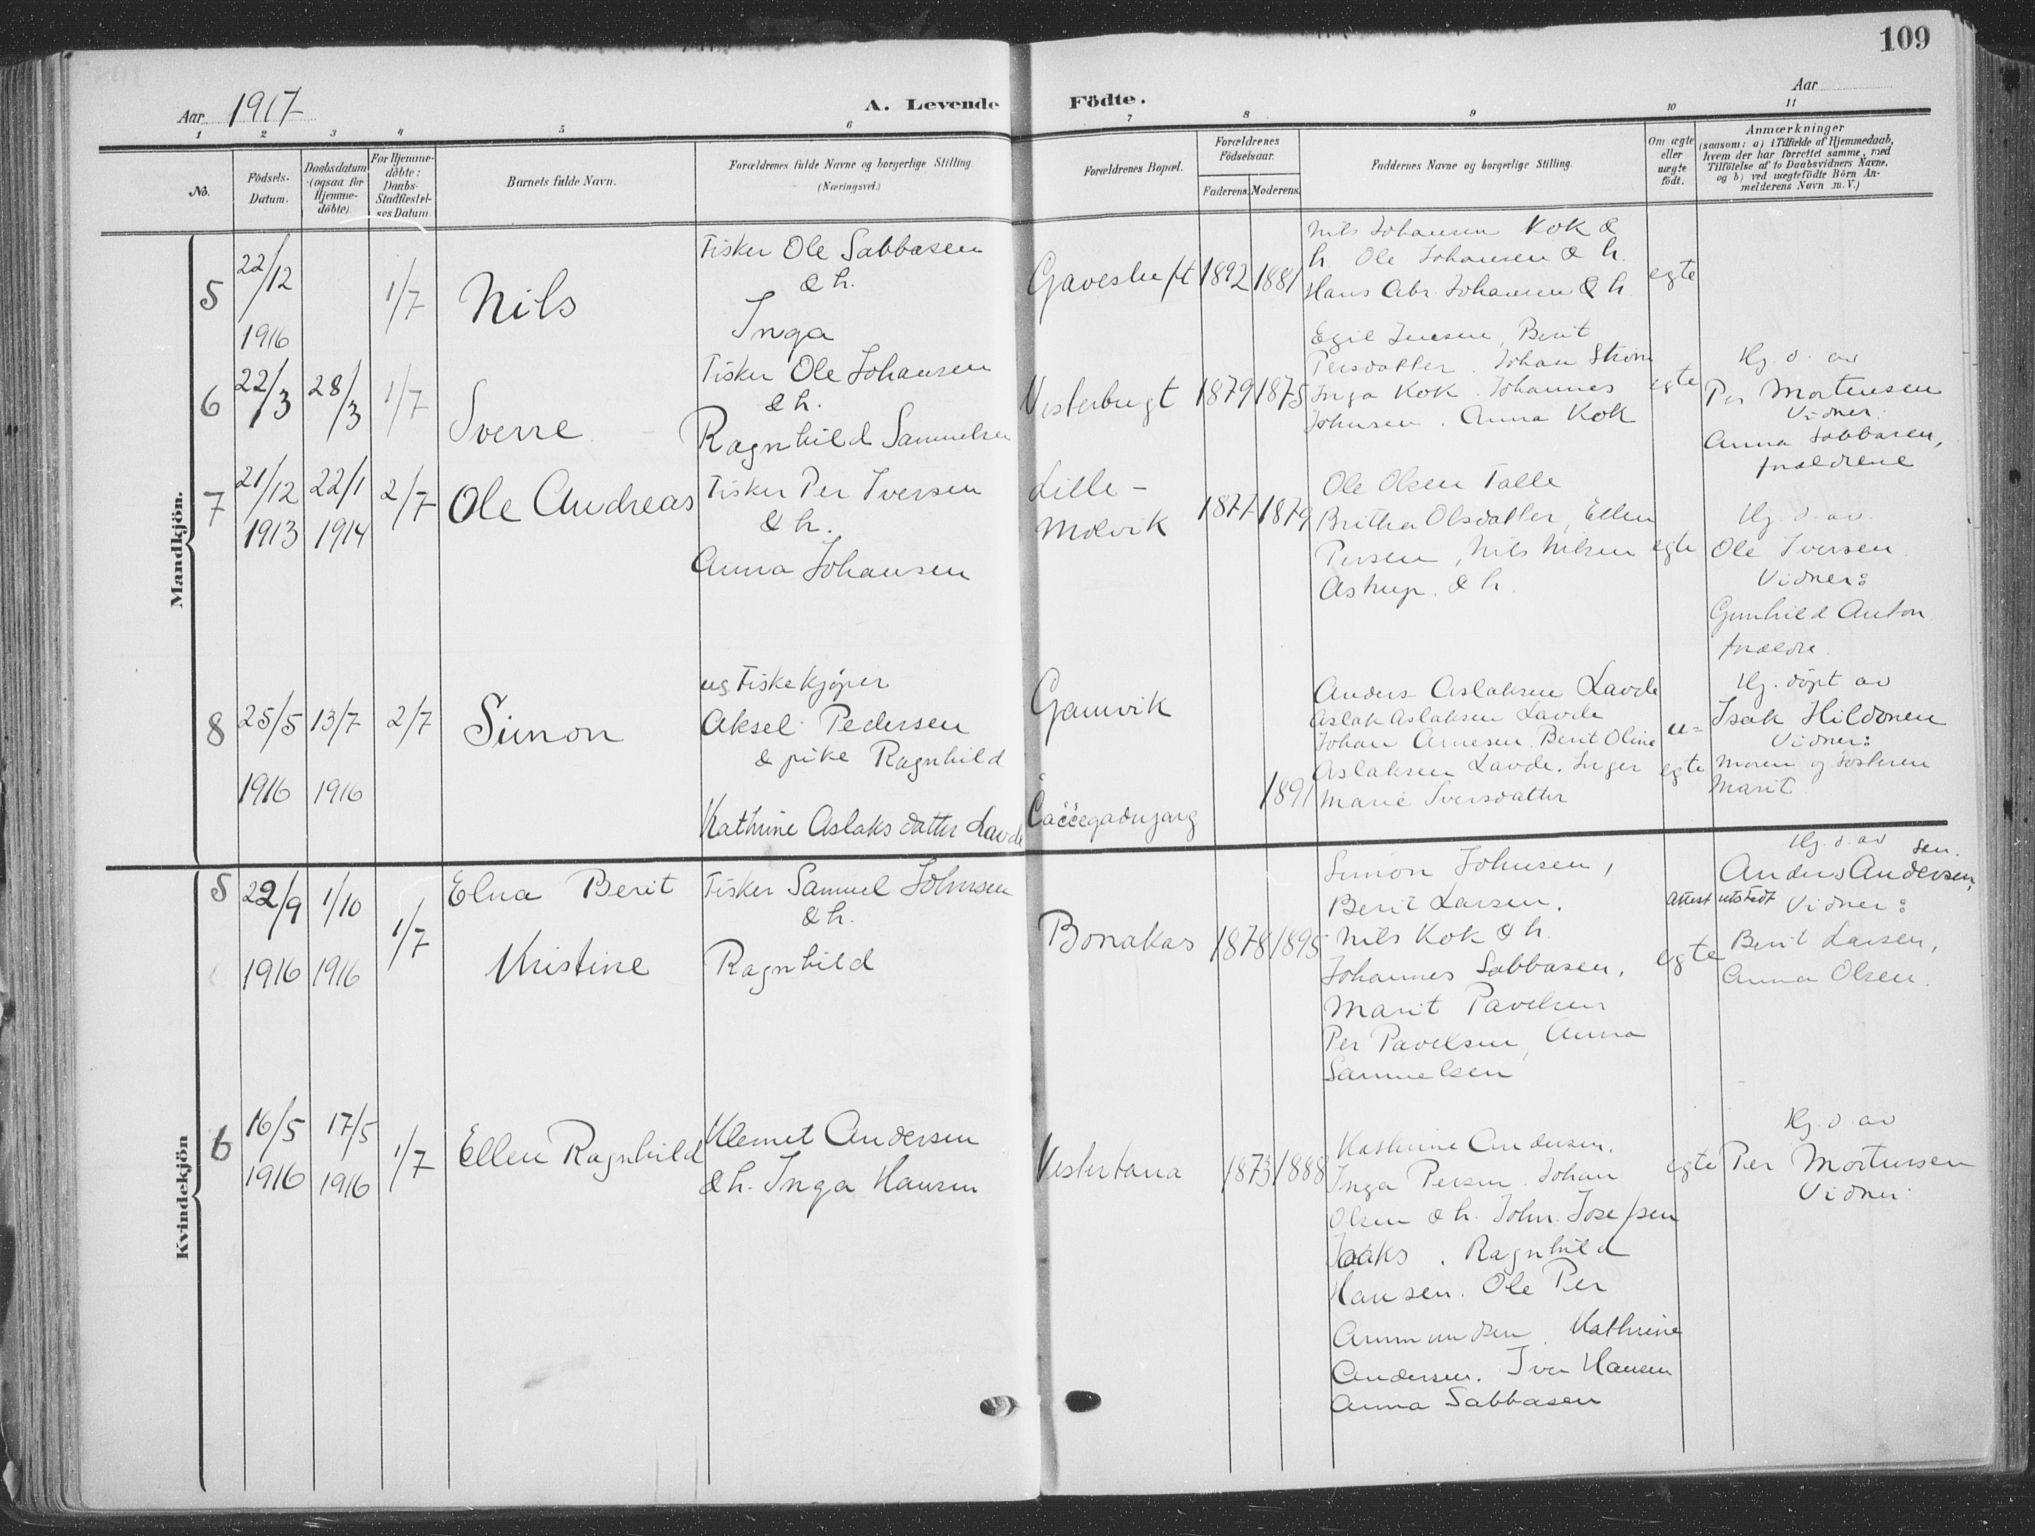 109
Aar 1917
A. Levende Födte.
Aar
1 2 3 4 5 6 7 8 9 10 11
No.
Födsels-
Datum.
Daabsdatum
(ogsaa for
Hjemme-
döbte).
For Hjemme-
döbte:
Daabs-
Stadfæstel-
ses Datum.
Barnets fulde Navn.
Forældrenes fulde Navne og borgerlige Stilling.
(Næringsvei.)
Forældrenes Bopæl.
Forældrenes
Födselsaar.
Faderens. Moderens.
Faddernes Navne og borgerlige Stilling.
Om ægte
eller
uægte
födt.
Anmærkninger
(saasom: a) i Tilfælde af Hjemmedaab,
hvem der har forrettet samme, med
Tilföielse af to Daabsvidners Navne,
og b) ved uægtefödte Börn An-
melderens Navn m. V.)
Mandkjön.
5
22/12
1916
1/7
Nils
Fisker Ole Sabbasen
& h.
Inga
Gavesluft
1892 1881
Nils Johansen Kok &
h Ole Johansen & h.
Hans Abr. Johansen & h
egte
6
22/3
28/3
1/7
Sverre
Fisker Ole Johansen
& h.
Ragnhild Samuelsen
Vesterbugt
1879 1875
Egil Jensen, Berit
Persdatter. Johan Strøm
Inga Kok. Johannes
Johnsen. Anna Kok
egte
Hj. d. av
Per Mortensen
Vidner:
Anna Sabbasen,
forældrene
7
21/12
1913
22/1
1914
2/7
Ole Andreas
Fisker Per Iversen
& h.
Anna Johansen
Lille-
Molvik
1877 1879
Ole Olsen Talle
Britha Olsdatter, Ellen
Persen, Nils Nilsen
Astrup. & h.
egte
Hj. d. av
Ole Iversen.
Vidner:
Gunhild Anton
forældre.
8
25/5
1916
13/7
1916
2/7
Simon
ug Fiskekjøper
Aksel Pedersen
& pike Ragnhild
Kathrine Aslaksdatter Lavde
Gamvik
Čaččegadnjarg
1891
Anders Aslaksen Lavde
Aslak Aslaksen Lavde
Johan Arnesen. Berit Oline
Aslaksen Lavde. Inger
Marie Iversdatter
u-
egte
Hj. døpt av
Isak Hildonen
Vidner:
Moren og søsteren
Marit
Kvindekjön
5
22/9
1916
1/10
1916
1/7
Elna Berit
Kristine
Fisker Samuel Johnsen
& h.
Ragnhild
Bonakas
1878 1895
Simon Johnsen,
Berit Larsen.
Nils Kok & h.
Johannes Sabbasen,
Marit Pavelsen
Per Pavelsen, Anna
Samuelsen
egte
Attest utstedt
Hj. d. av
Anders Andersen, sen.
Vidner:
Berit Larsen,
Anna Olsen.
6
16/5
1916
17/5
1916
1/7
Ellen Ragnhild
Klemet Andersen
& h. Inga Hansen
Vestertana
1873 1888
Kathrine Andersen.
Inga Persen. Johan
Olsen & h. John. Josefsen
Isaks. Ragnhild
Hansen. Ole Per
Ammundsen. Kathrine
Andersen. Iver Hansen
Anna Sabbasen
egte
Hj. d. av
Per Mortensen
Vidner: